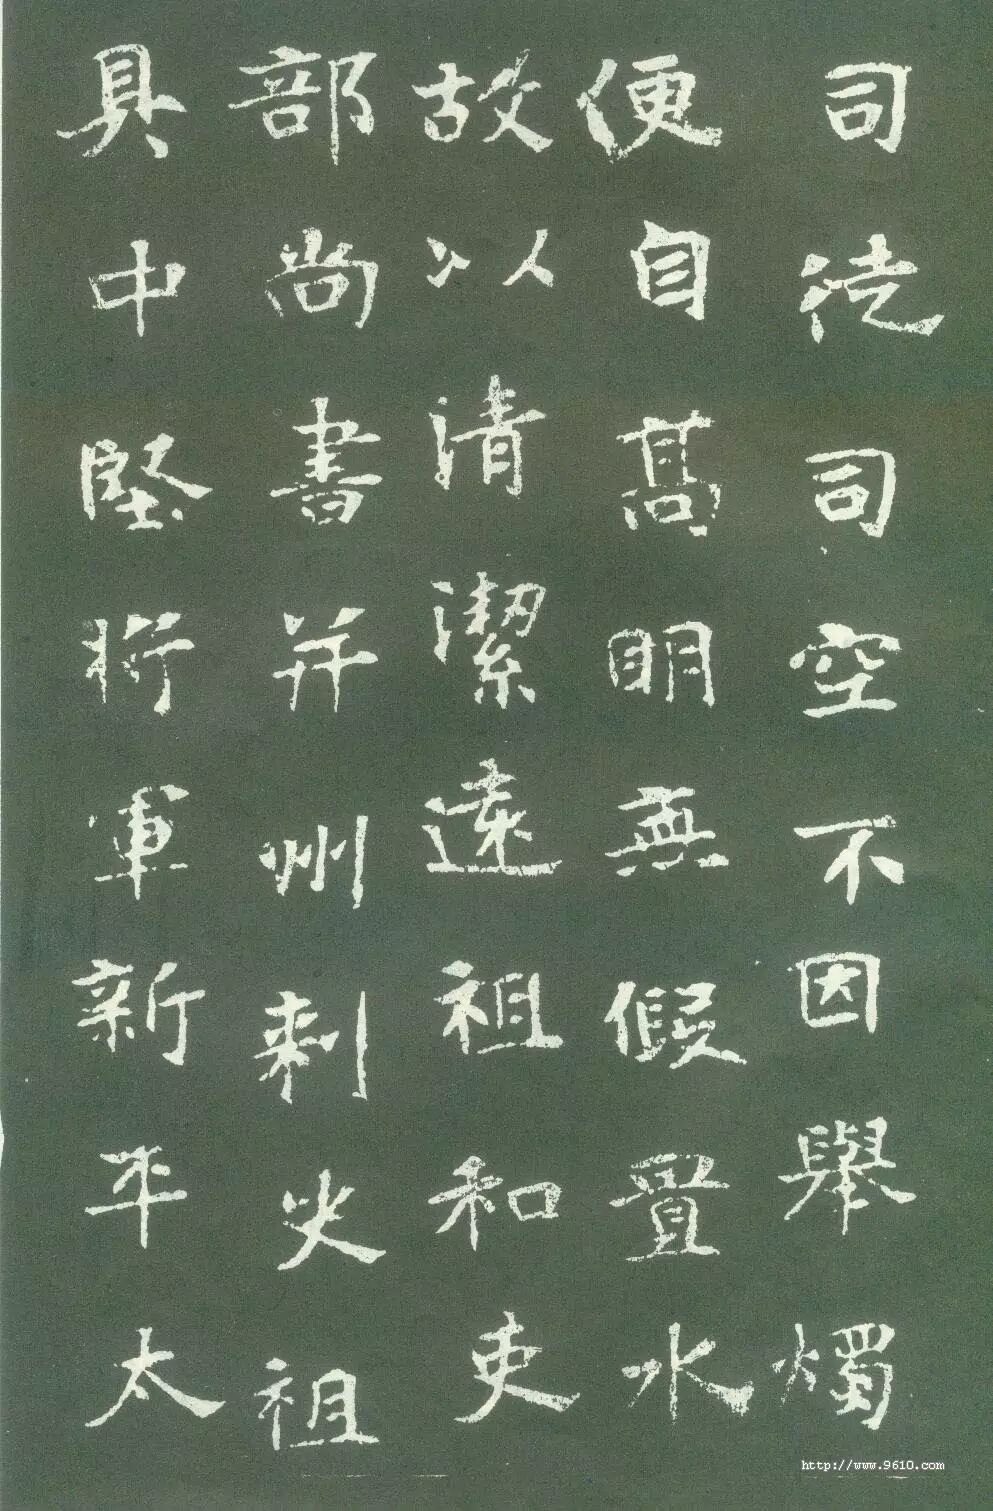 司徒司空不因舉燭
便自高明無假置水
故以清潔遠祖和吏
部尚書并州刺史祖
具中堅將軍新平太
http://www.9610.com